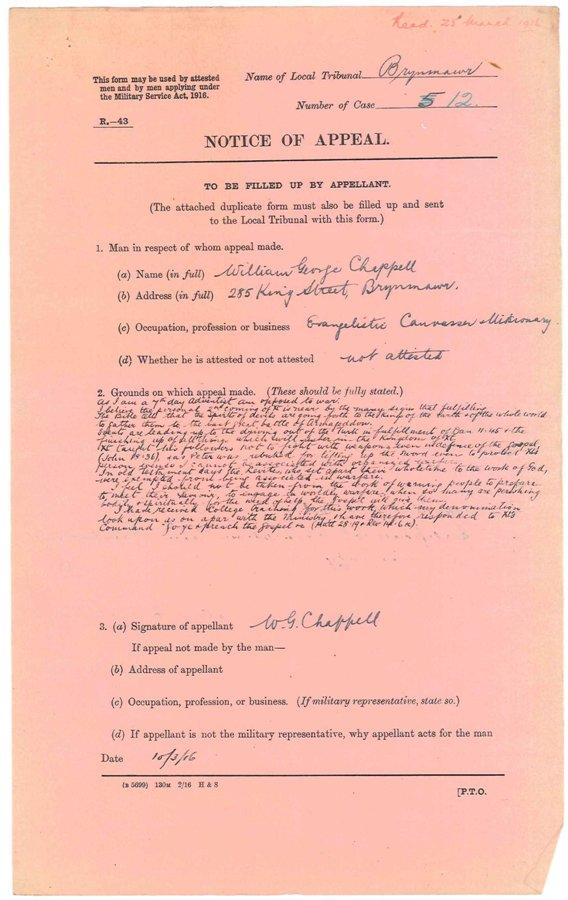 Recd. 25 March 1916
This form may be used by attested
men and by men applying under
the Military Service Act, 1916.
Name of Local Tribunal Brynmawr
Number of Case 5 12.
R.—43
NOTICE OF APPEAL.
TO BE FILLED UP BY APPELLANT.
(The attached duplicate form must also be filled up and sent
to the Local Tribunal with this form.)
1. Man in respect of whom appeal made.
(a) Name (in full) William George Chappell
(b) Address (in full) 285 King Street, Brynmawr.
(c) Occupation, profession or business Evangelistic Canvasser Missionary
(d) Whether he is attested or not attested not attested
2. Grounds on which appeal made. (These should be fully stated.)
As I am a 7th day Adventist am opposed to war.
I believe the personal 2nd coming of Xt is near by the many signs that fulfilling
The Bible says that the spirits of devils are going forth to the Kings of the Earth & of the whole world
to gather them to the last great battle of Armageddon.
Events are leading up to the driving out of the Turk in fulfillment of Dan 11:45 & the
finishing up of all things which will usher in the Kingdom of Xt
Xt taught His follower not to fight with weapons even in defence of the gospel,
(John 18:36) as Peter was rebuked for lifting up the sword even to protect His
person
In old testament days the Levites, who set apart them wholetime to the work of God,
were exempted from being associated in warfare.
I feel I should not be taken from the work of warning people to prepare
to meet their Saviour, to engage in worldly warfare, when so many are perishing
body & spiritually for the need of help the Gospel will give them.
I have received College training for this work which my denomination
look upon as on a par with the Ministry & have therefore responded to His
Command to go ye & preach the Gospel (Matt 28:19 & Rev 14:6 )
3. (a) Signature of appellant W. G. Chappell
If appeal not made by the man—
(b) Address of appellant
(c) Occupation, profession, or business. (If military representative, state so.)
(d) If appellant is not the military representative, why appellant acts for the man
Date 10/3/16
(B 5699) 130M 2/16 H & S
[P.T.O.